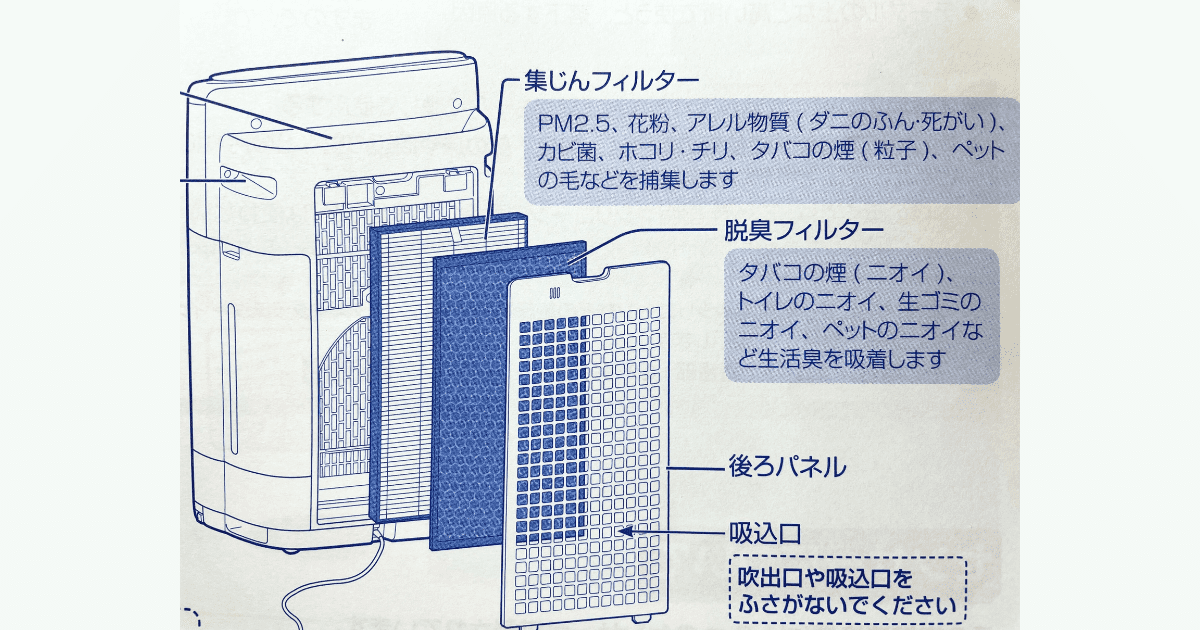 集じんフィルター
PM2.5、花粉、アレル物質(ダニのふん・死がい)、
カビ菌、ホコリ・チリ、タバコの煙(粒子)、ペット
の毛などを捕集します
脱臭フィルター
タバコの煙(ニオイ)、
トイレのニオイ、生ゴミの
ニオイ、ペットのニオイな
ど生活臭を吸着します
後ろパネル
吸込口
吹出口や吸込口を
ふさがないでください